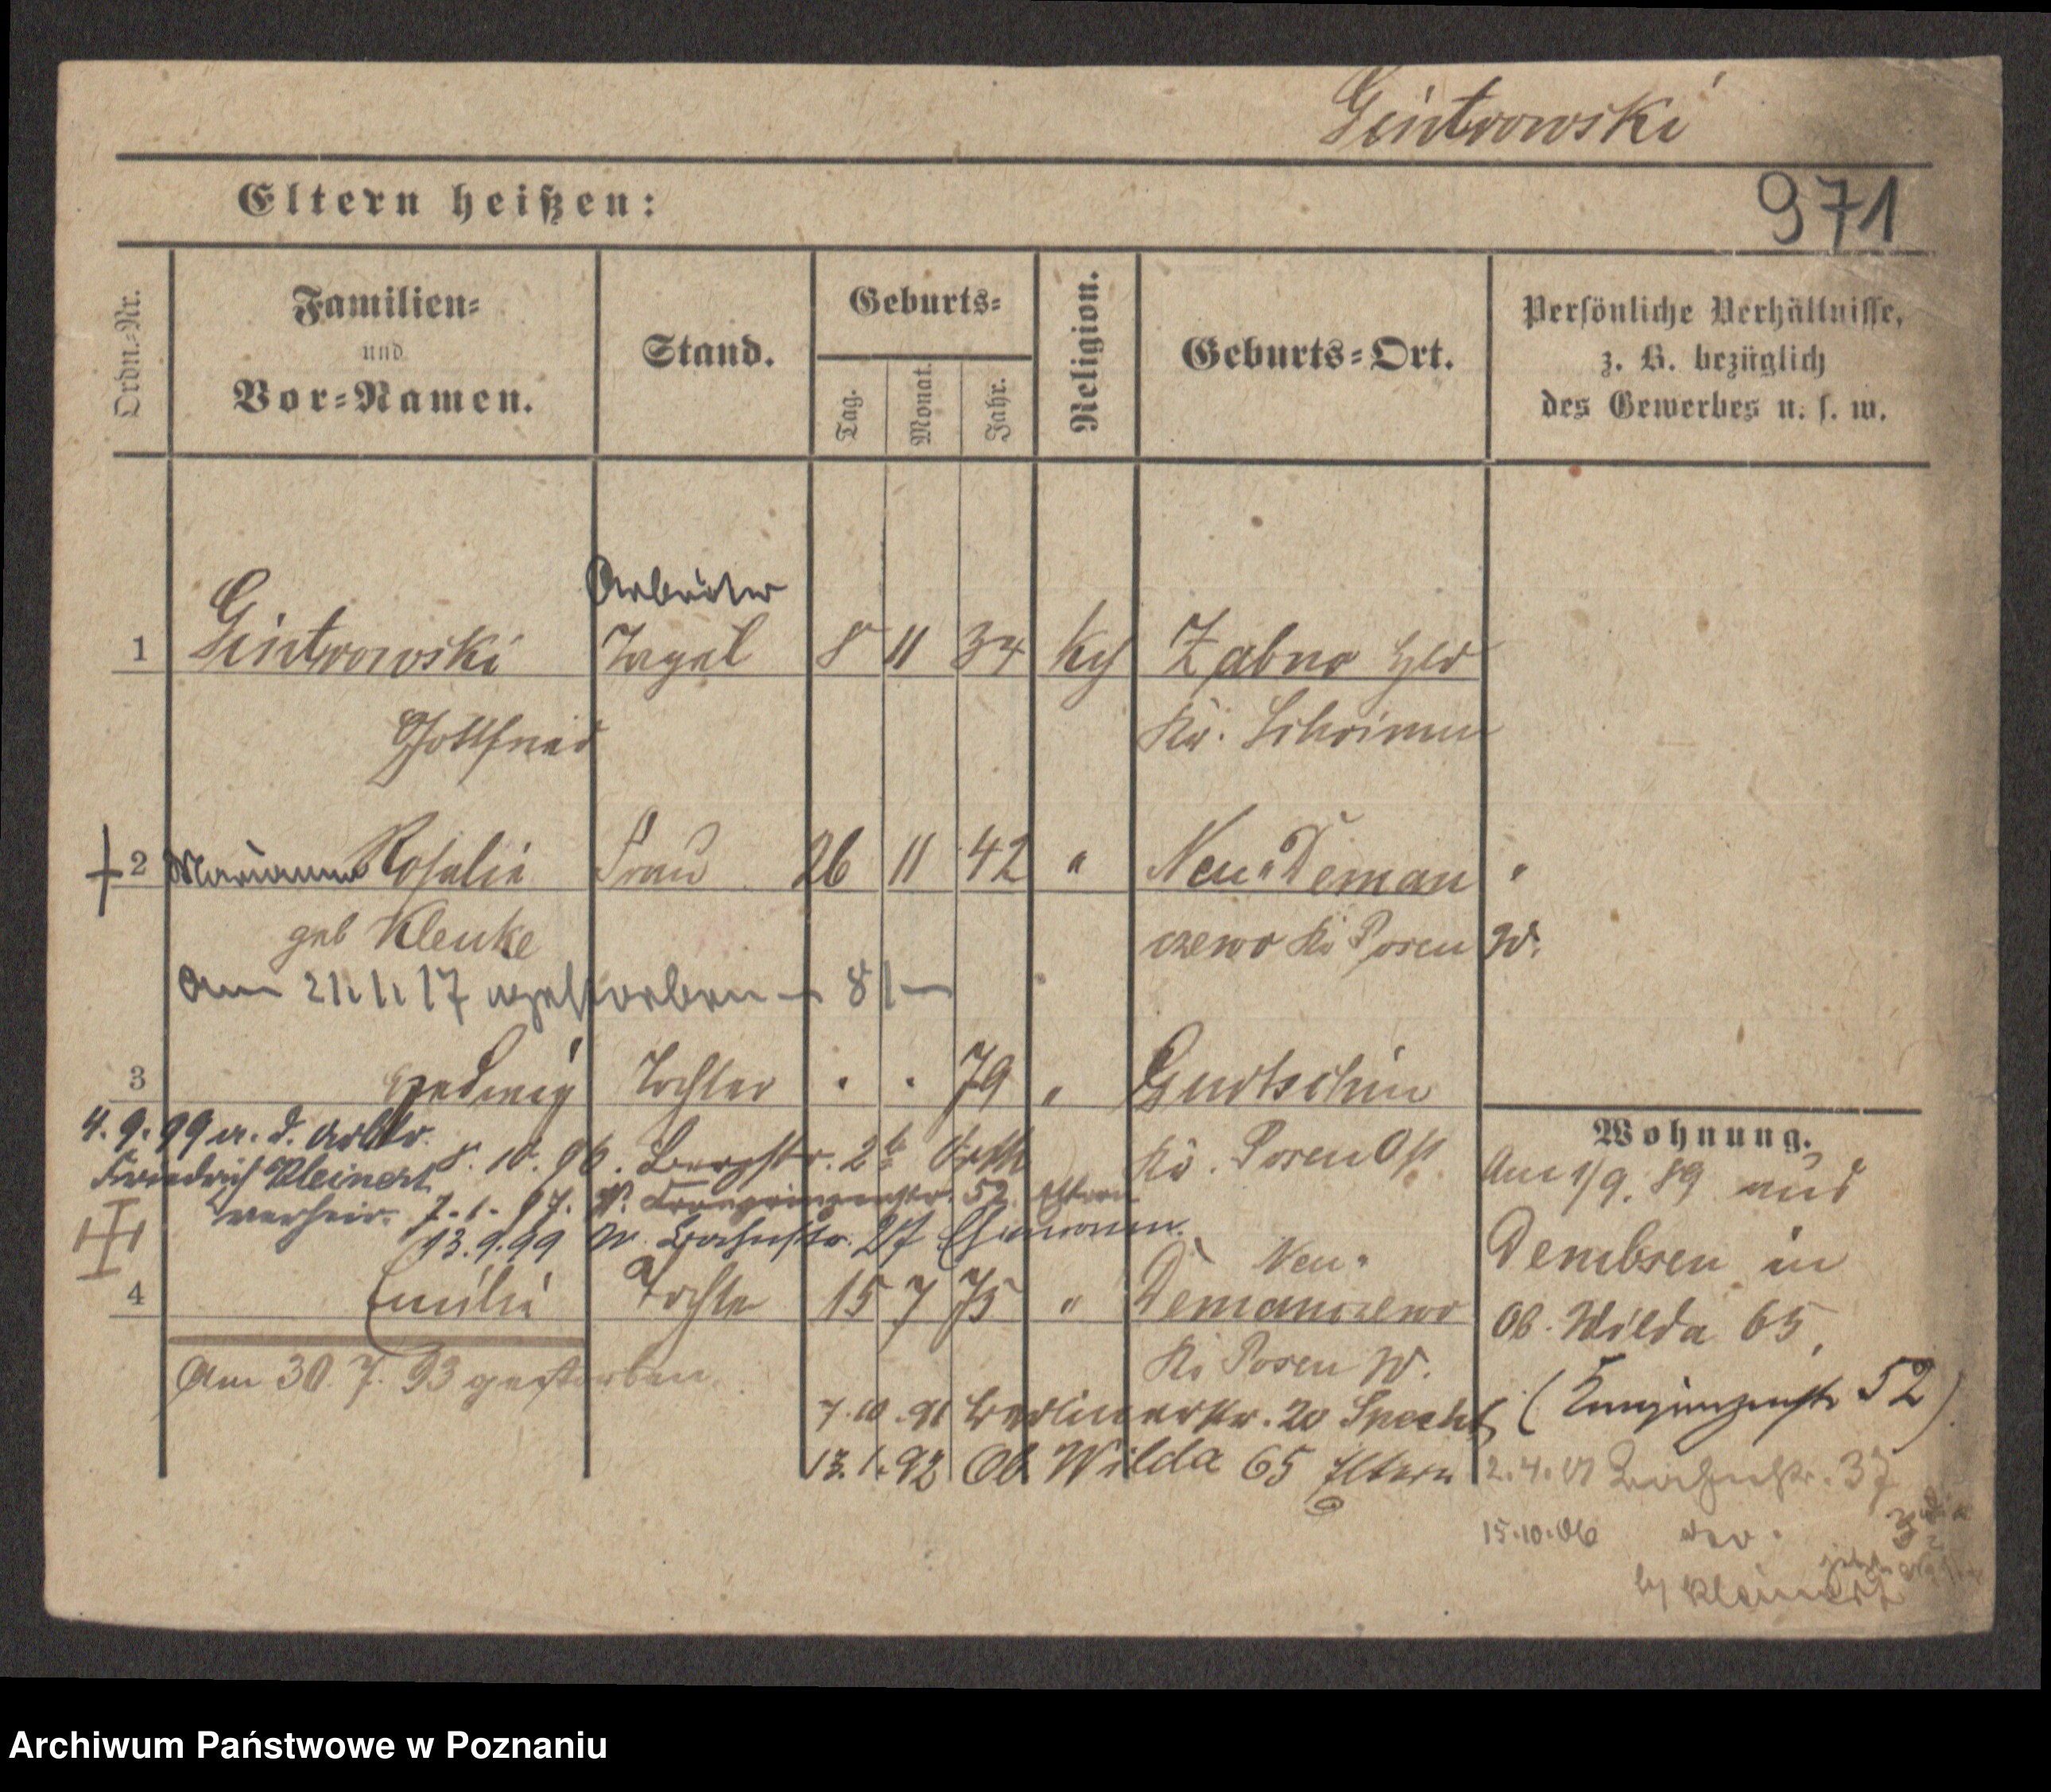 Gintrowski
Eltern heißen:
971
Ordn.-Nr.
Familien-
und
Vor-Namen.
Stand.
Geburts-
Tag.
Monat.
Jahr.
Religion.
Geburts-Ort.
Persönliche Verhältnisse,
z. B. bezüglich
des Gewerbes u. s. w.
Arbeiter
1 Gintrowski 8 11 34 Zabno
Gottfried Kr. Schrimm
2 Marianna Rosalie Frau 26 11 42 " Neu-Deman
geb Klenke czewo Kr Posen W.
Am 21.1.17 gestorben 81
3 Hedwig Tochter " " 79 " Gurtschin
Kr. Posen Ost
4.9.99 a. d. Arbtr.
Friedrich Kleinert
verheir.
8. 10. 96. Bergstr. 2b
7.1.97. Kronprinzenstr. 52 Eltern
13.9.99 Bachstr. 27 Ehemann.
4 Emilie Tochter 15 7 75 " Neu-
Demanczewo
Kr Posen W.
Am 30. 7. 93 gestorben
7.10.91 Berlinerstr. 20 Specht
13.1.92 Ob. Wilda 65 Eltern
Wohnung.
Am 1/9. 89 aus
Dembsen in
Ob. Wilda 65,
(Kronprinzenstr 52)
2.4.01 37
15.10.06
Kleinert
Archiwum Państwowe w Poznaniu